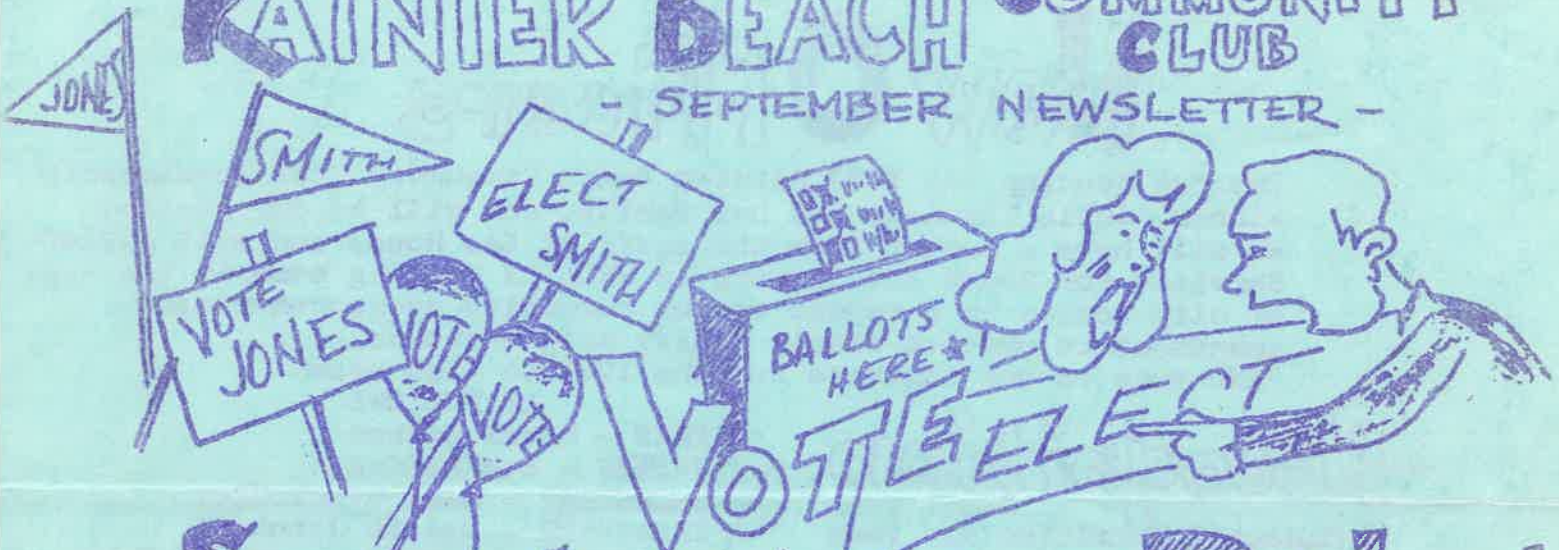 RAINIER BEACH COMMUNITY
CLUB
- SEPTEMBER NEWSLETTER -
JONES
SMITH
ELECT
SMITH
VOTE
JONES
VOTE
VOTE
BALLOTS
HERE*
VOTE ELECT